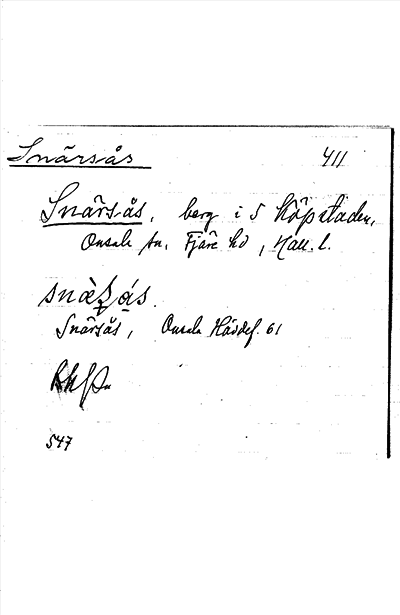 Snärsås 411
Snärsås, berg i S Köpstaden,
Onsala sn, Fjäre hd, Hall. l.
Snärsås, Onsala Hävdef. 61
547